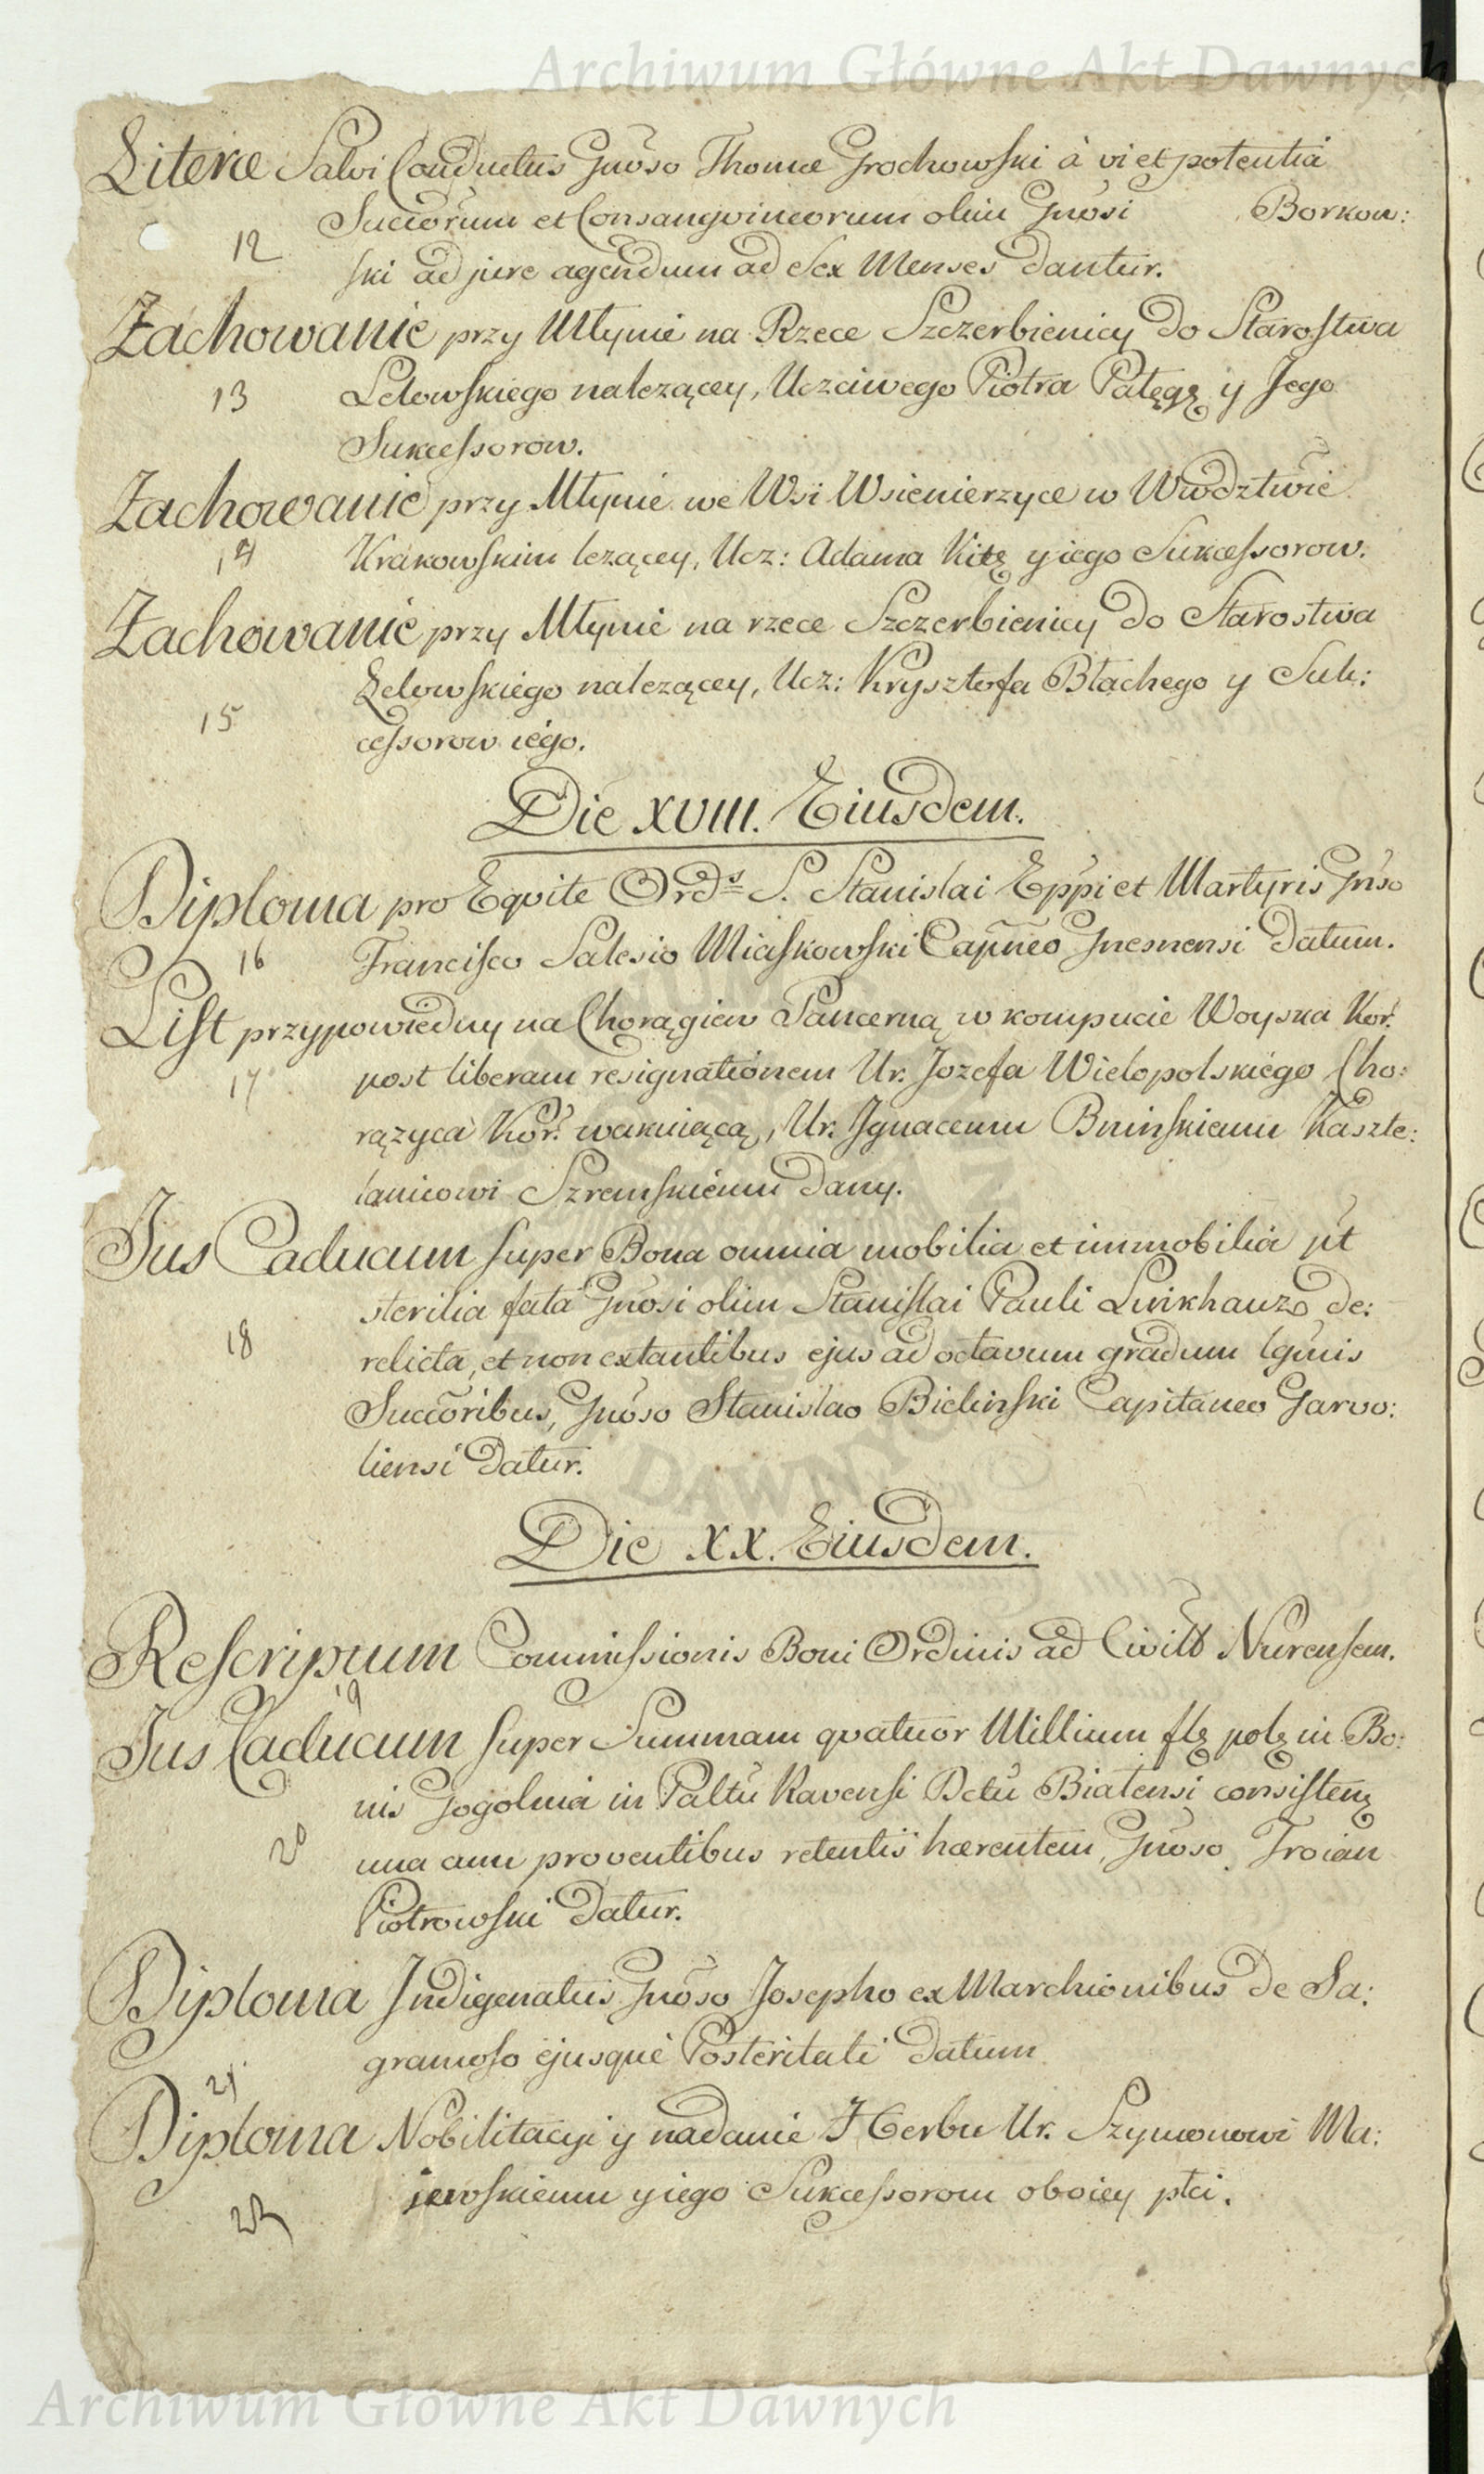 Archiwum Główne Akt Dawnych
Literæ Salvi Conductus Gnōso Thomæ Grochowski à vi et potentiâ
Succōrum et Consangvineorum olim Gnōsi Borkow:
12
ski ad jure agendum ad Sex Menses dantur.
Zachowanie przy Młynie na Rzece Szczerbienicy do Starostwa
13
Lelowskiego należący, Uczciwego Piotra Pałęgę y Jego
Sukcessorow.
Zachowanie przy Młynie we Wsi Wsienierzyce w Wwdztwie
14
Krakowskim leżącey, Ucz: Adama Kitę y iego Sukcessorow.
Zachowanie przy Młynie na rzece Szczerbienicy do Starostwa
Lelowskiego należącey, Ucz: Krysztofa Błachego y Suk:
15
cessorow iego.
Die XVIII. Eiusdem.
Diploma pro Eqvite Ords S. Stanislai Eppi et Martyris Gnso
16
Francisco Salesio Miaskowski Capneo Gnesnensi datum.
List przypowiedny na Chorągiew Pancerną w kompucie Woyska Kor.
17
post liberam resignationem Ur. Jozefa Wielopolskiego Cho:
rązyca Kor. wakuiącą, Ur. Ignacemu Bninskiemu Kaszte:
lanicowi Szremskiemu dany.
Jus Caducum super Bona omnia mobilia et immobilia ut
sterilia fata Gnōsi olim Stanislai Pauli Lwikhauz de:
18
relicta, et non extantibus ejus ad octavum gradum lgmis
Succōribus, Gnōso Stanislao Bielinski Capitaneo Garvo:
liensi datur.
DAWNYCH
Die XX. Eiusdem.
Rescriptum Commissionis Boni Ordinis ad Civitt Nurensem.
19
Jus Caducum super Summam qvatuor Millium flę polę in Bo:
nis Gogolnia in Paltu Ravensi Dctu Bialensi consistenę
20
una cum proventibus retentis hærentem, Gnōso Troian
Piotrowski datur.
Diploma Indigenatus Gnōso Josepho ex Marchionibus de Sa:
gramoso ejusque Posteritati datum
21
Diploma Nobilitacyi y nadanie Herbu Ur. Szymonowi Ma:
jewskiemu y iego Sukcessorom oboiey płci.
22
Archiwum Główne Akt Dawnych